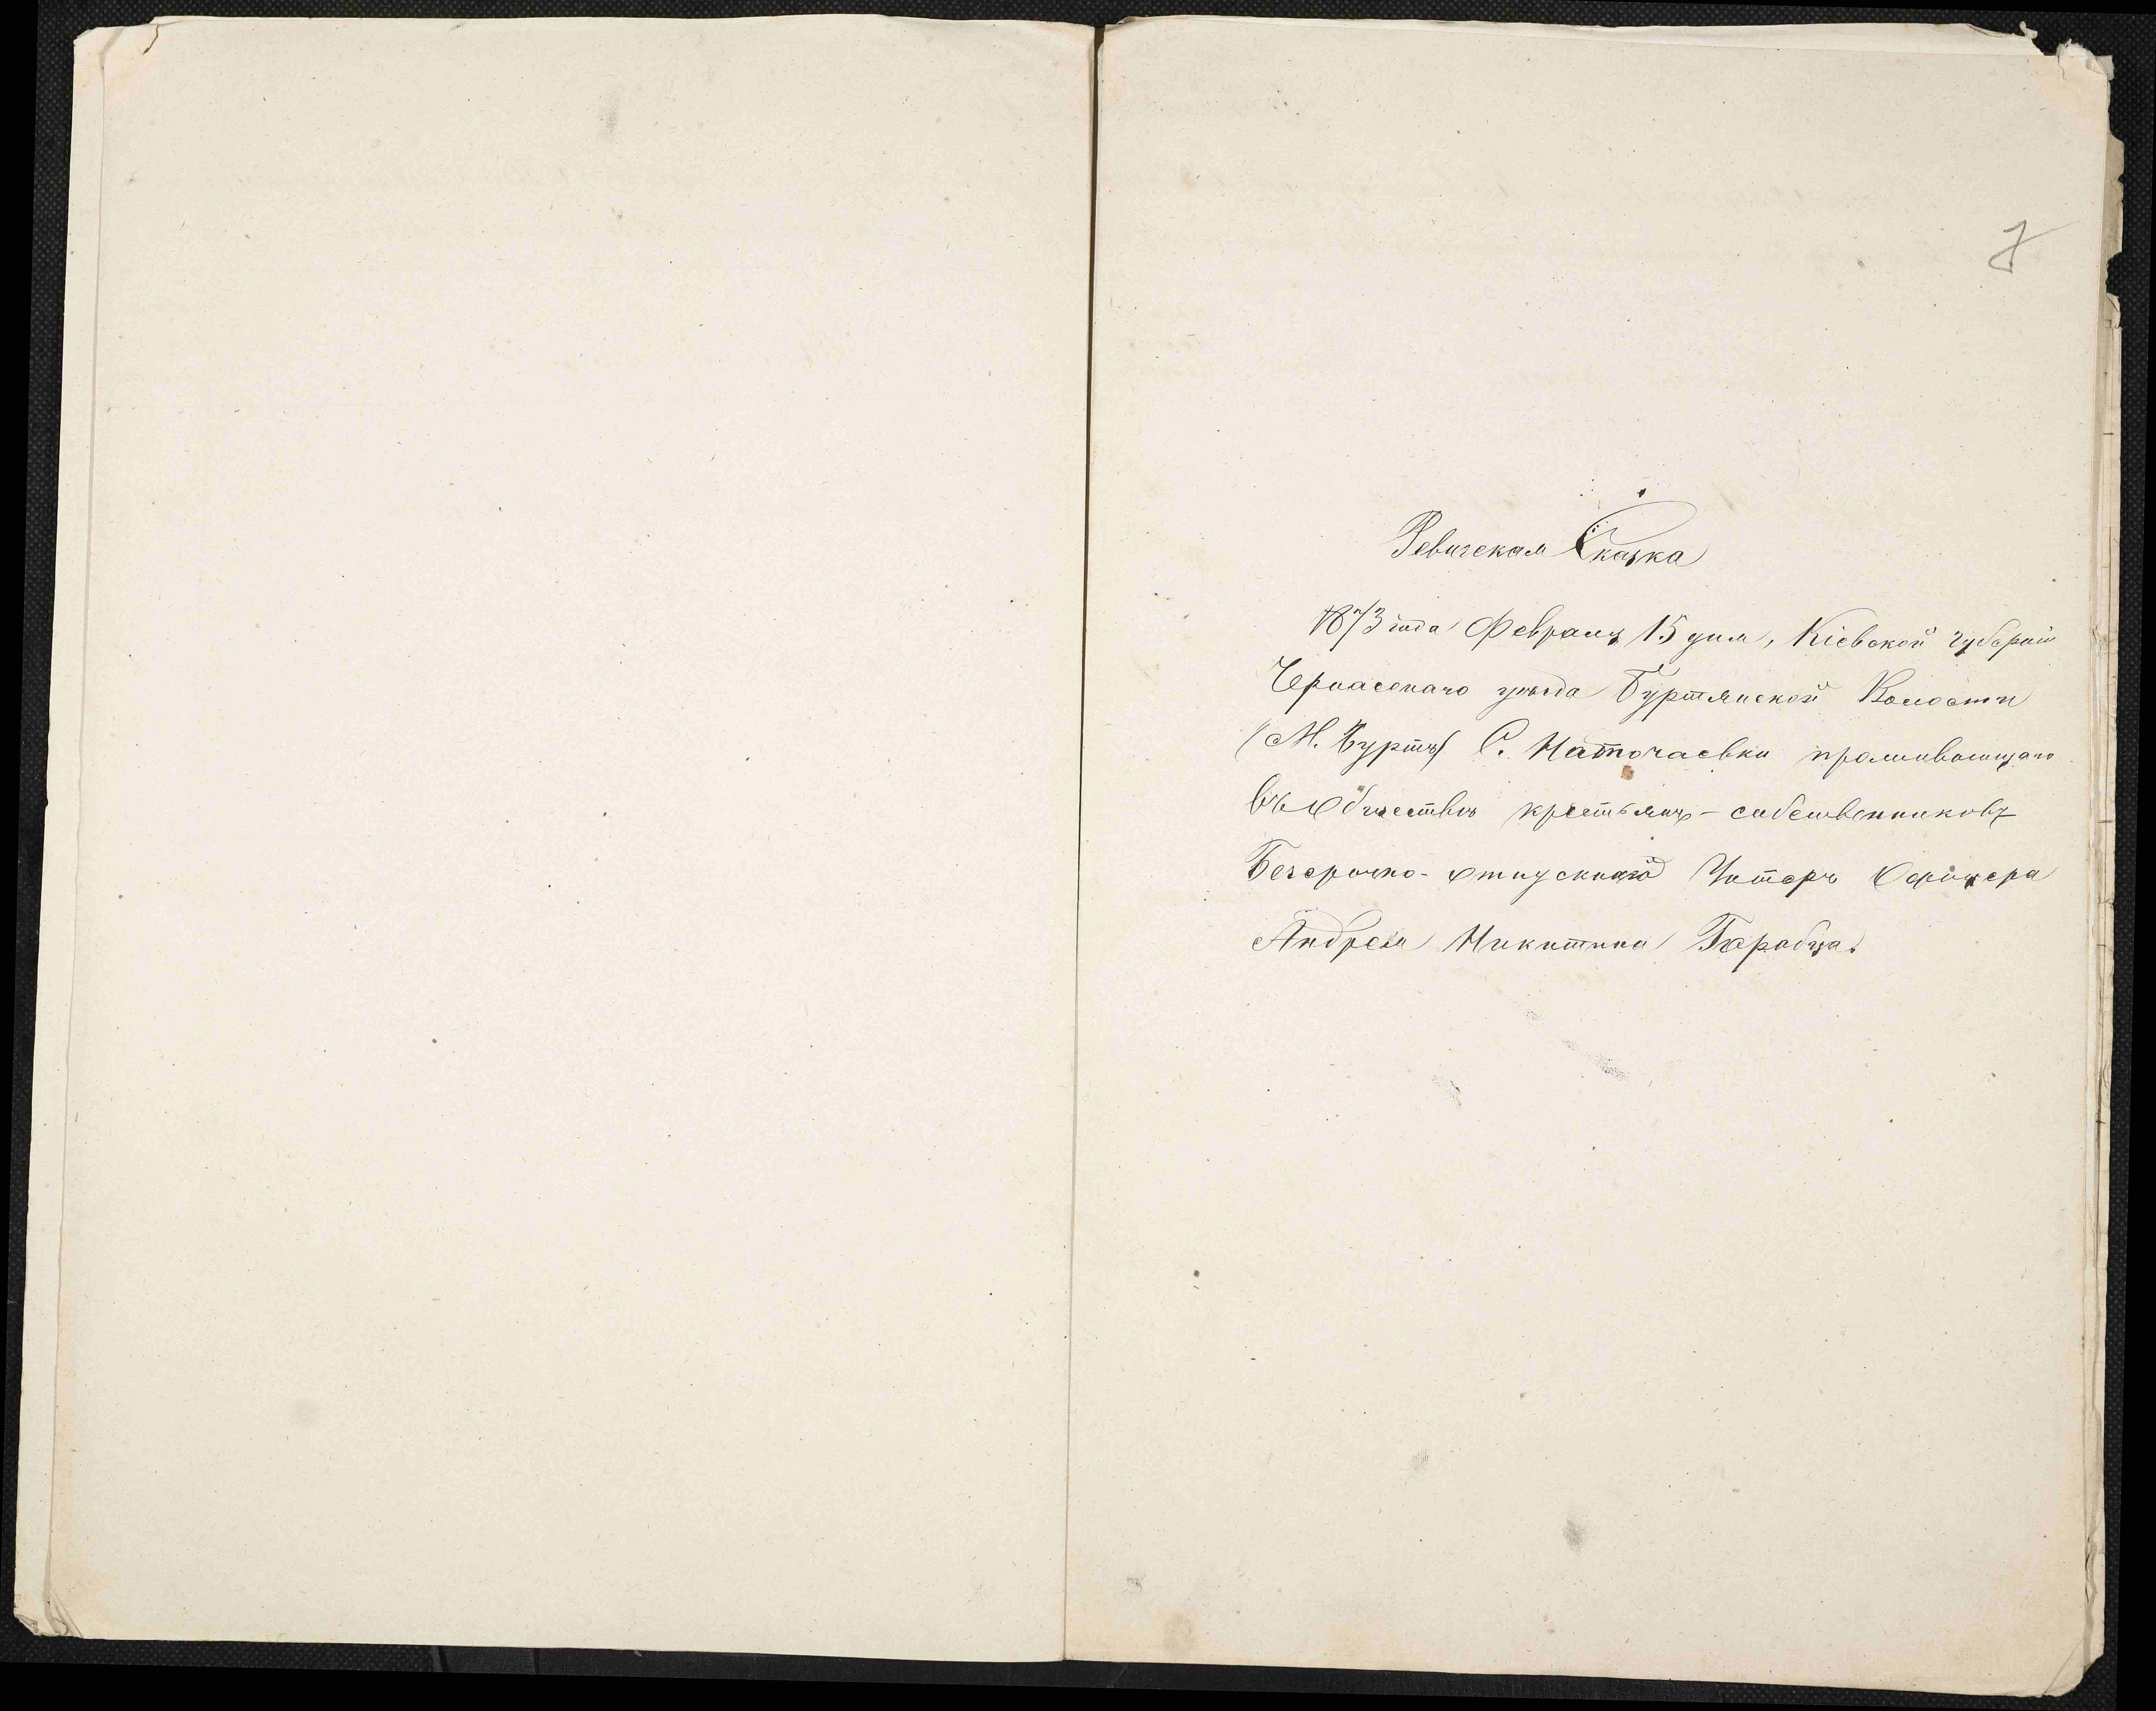 7
Ревизская Сказка
1873 года Февраля 15 дня, Кіевской губерніи
Черкасскаго уѣзда Буртянской Волости
(М. Бурты) С. Наточаевки проживающаго
въ Обществѣ крестьянъ-собственниковъ
Безсрочно-отпускнаго Унтеръ Офицера
Андрея Никитина Барабца.